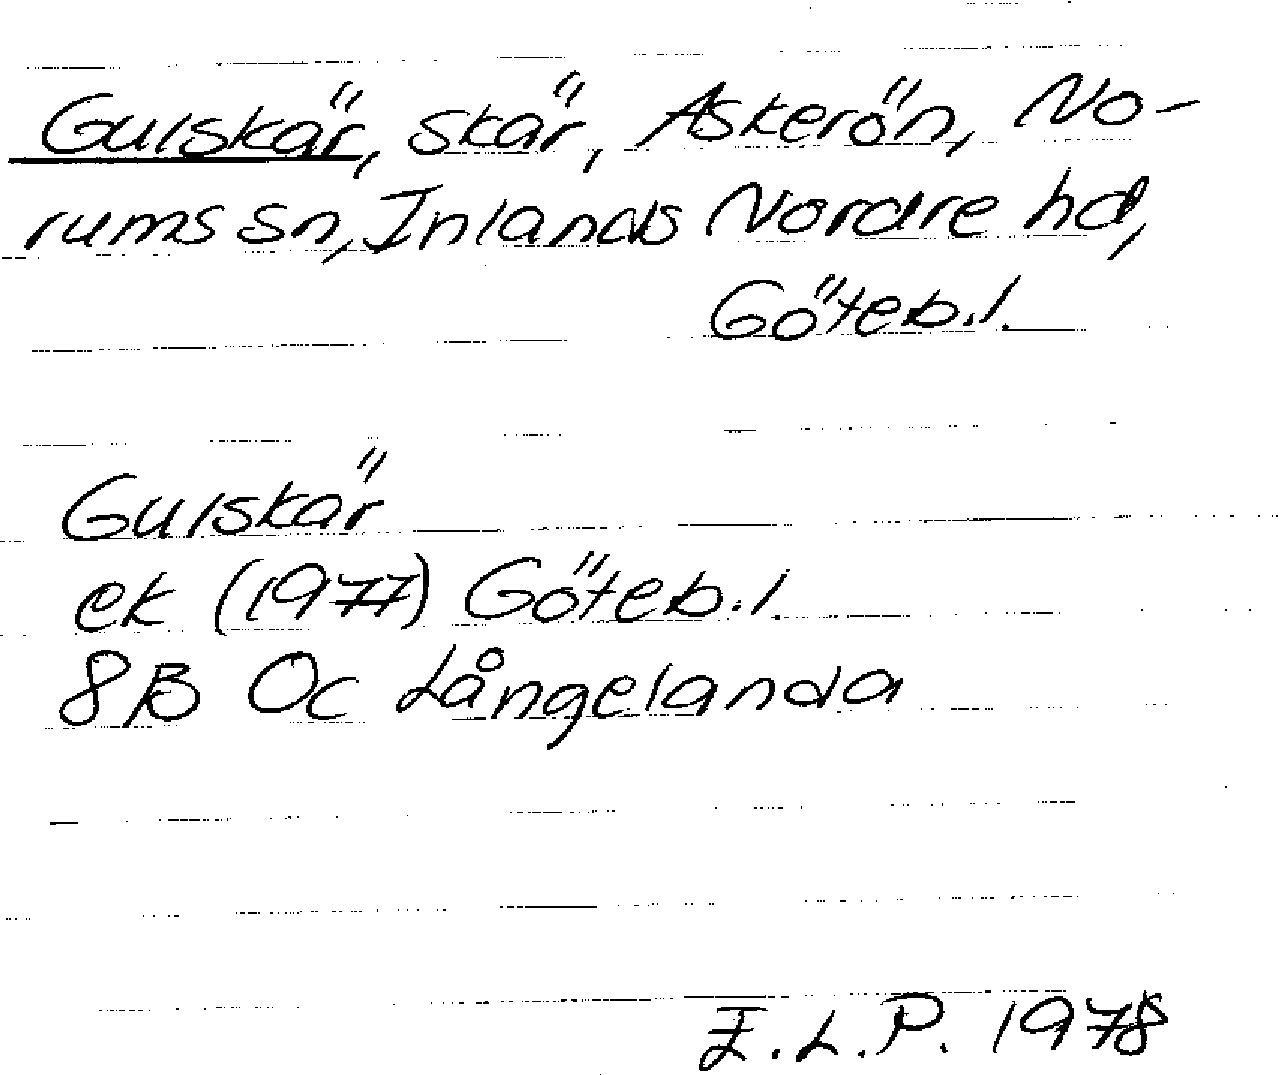 Gulskär, skär, Askerön, No-
rums sn, Inlands Nordre hd,
Göteb.l.
Gulskär
ek (1977) Göteb.l.
8B Oc Långelanda
E.L.P. 1978